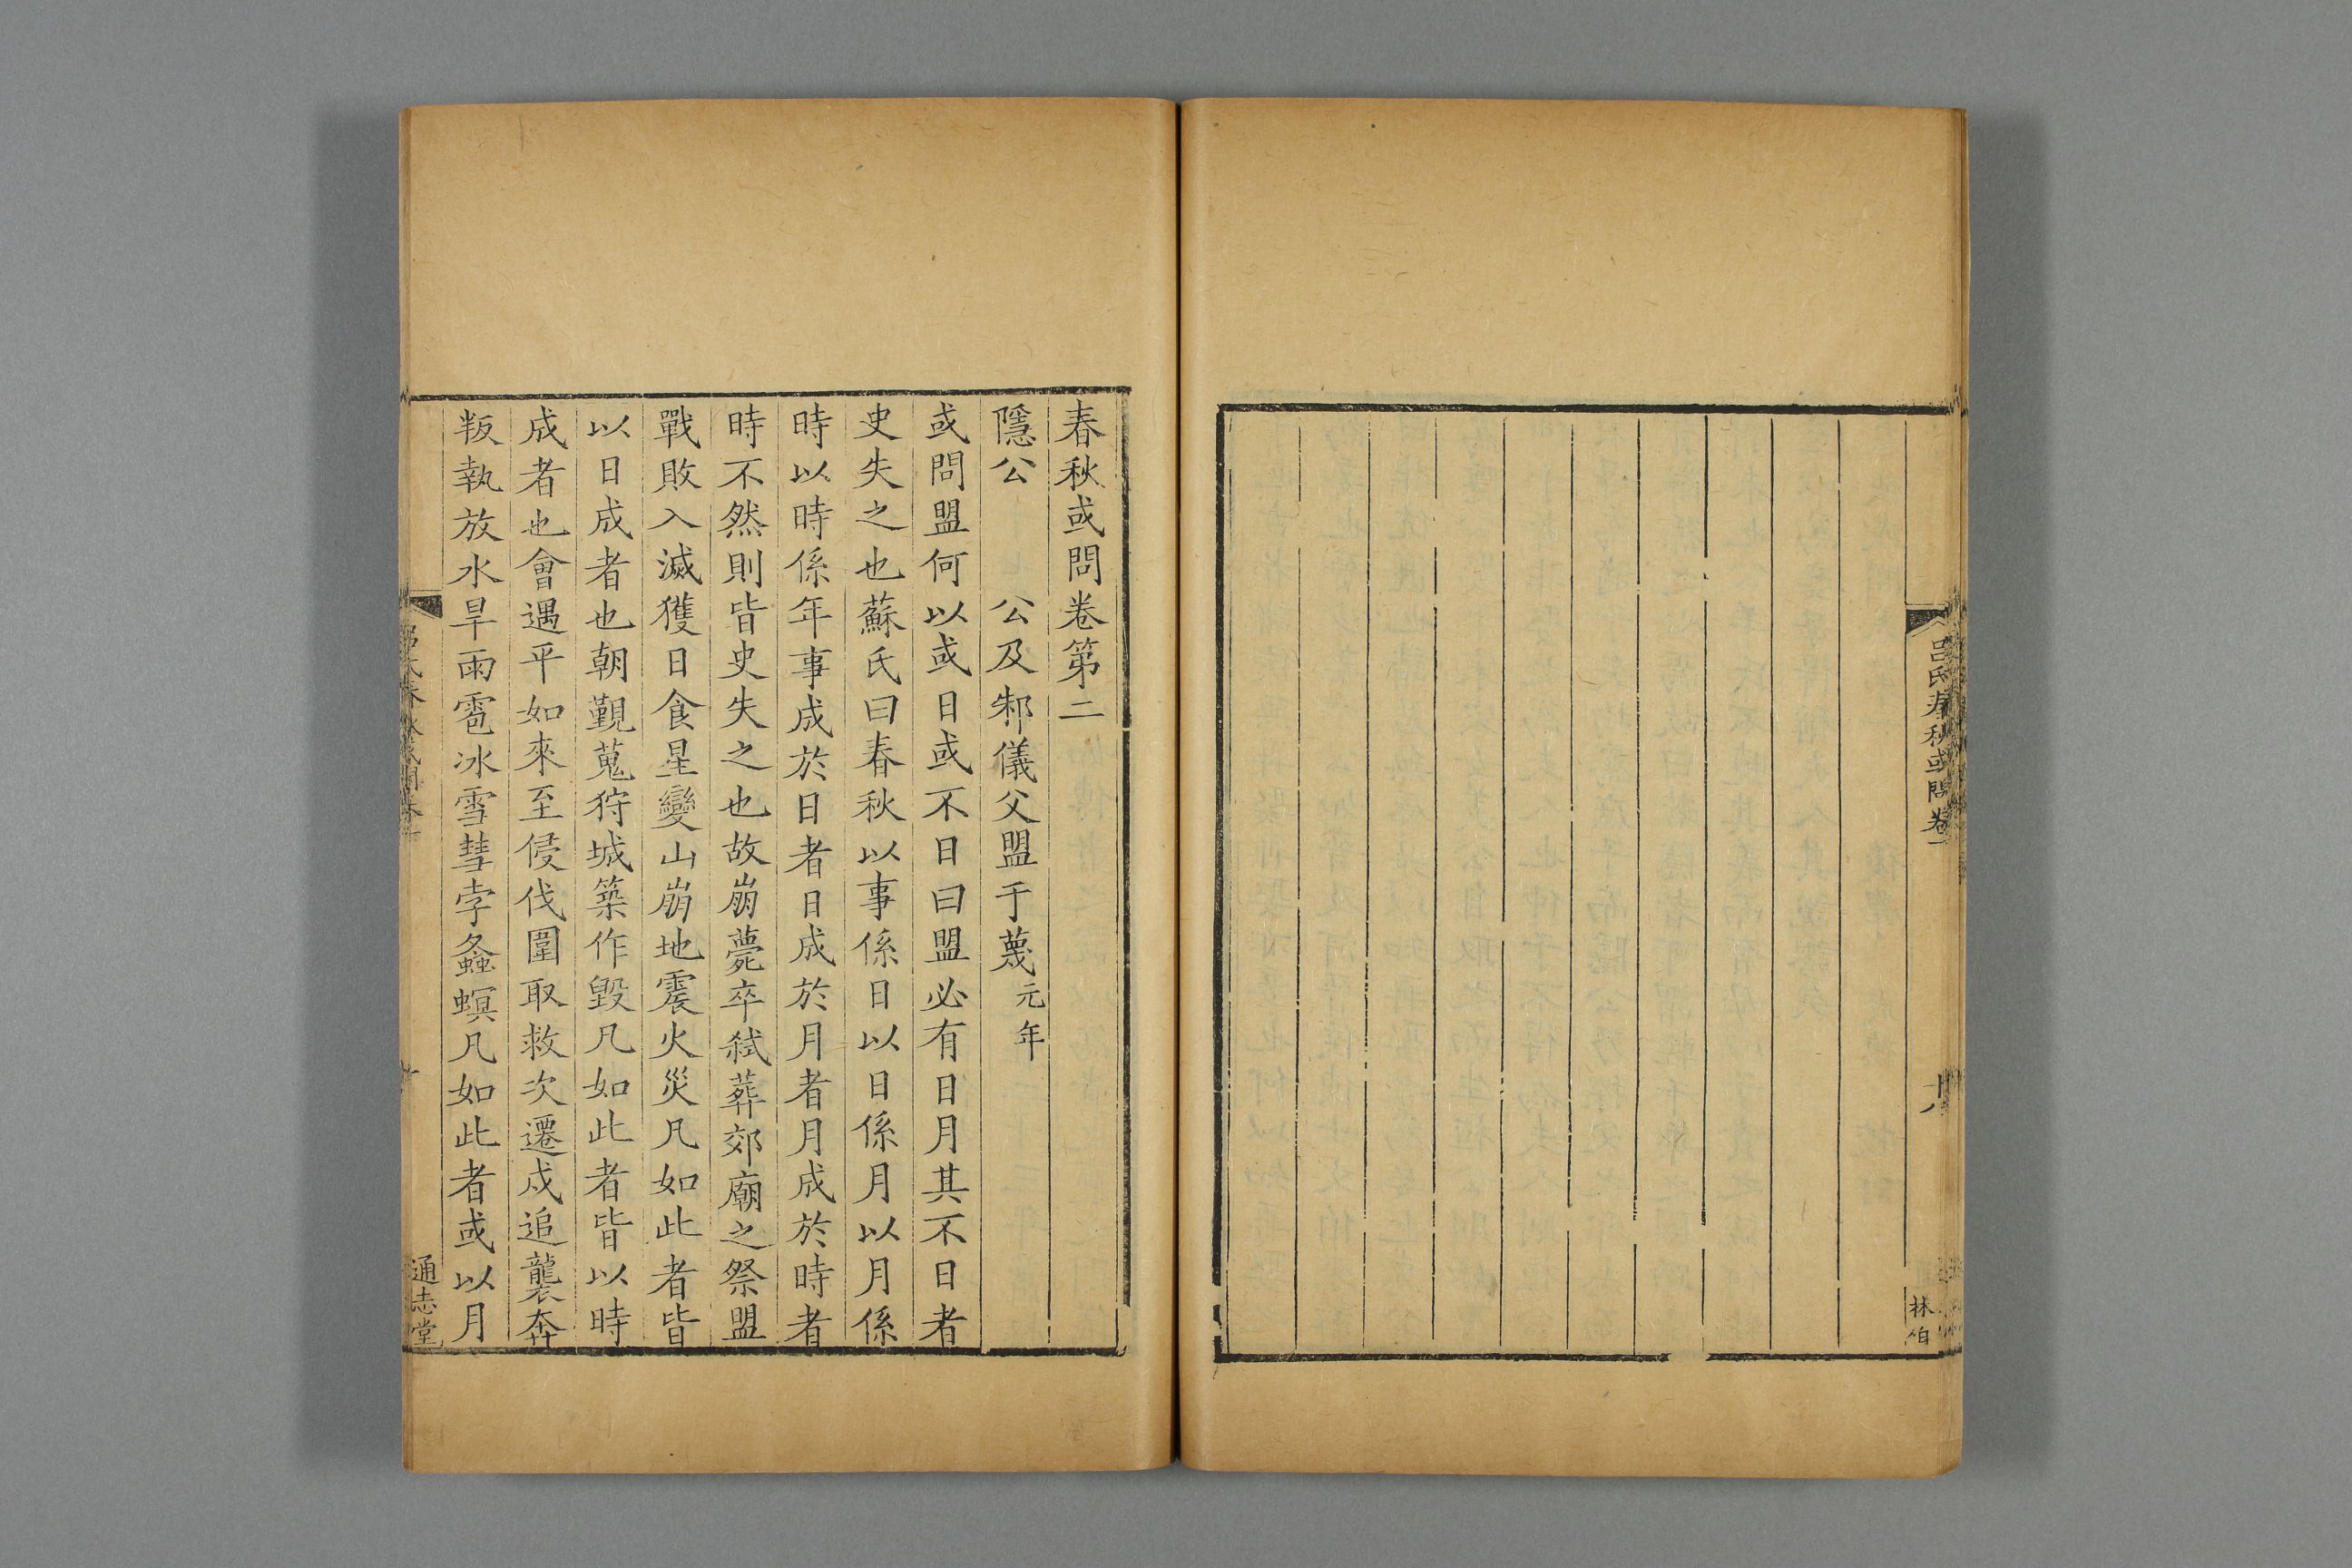 呂氏春秋或問卷一
十八
林伯
春秋或問卷第二
隱公　公及邾儀父盟于蔑元年
或問盟何以或日或不日曰盟必有日月其不日者
史失之也蘇氏曰春秋以事係日以日係月以月係
時以時係年事成於日者日成於月者月成於時者
時不然則皆史失之也故崩薨卒弑葬郊廟之祭盟
戰敗入滅獲日食星變山崩地震火災凡如此者皆
以日成者也朝覲蒐狩城築作毀凡如此者皆以時
成者也會遇平如來至侵伐圍取救次遷戍追襲奔
叛執放水旱雨雹冰雪彗孛螽螟凡如此者或以月
通志堂